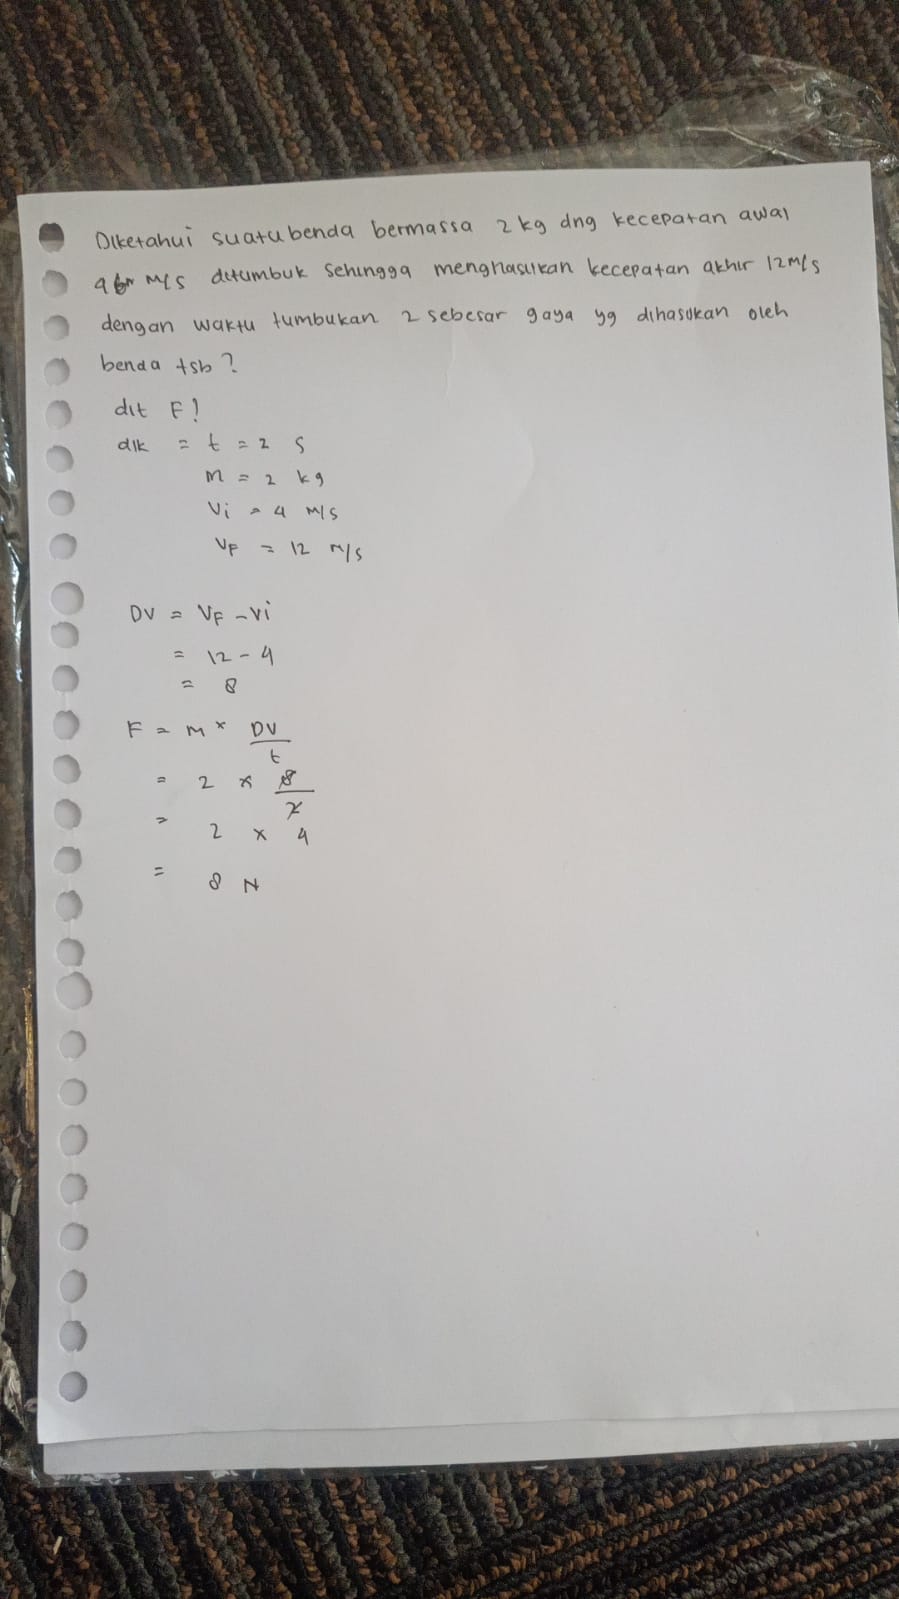 Diketahui suatu benda bermassa 2 kg dng kecepatan awal
4 m/s ditumbuk sehingga menghasilkan kecepatan akhir 12 m/s
dengan waktu tumbukan 2 sebesar gaya yg dihasilkan oleh
benda tsb ?
dit F!
dik = t = 2 s
m = 2 kg
Vi = 4 m/s
VF = 12 m/s
DV = VF - Vi
= 12 - 4
= 8
F = m x DV/t
= 2 x 8/2
= 2 x 4
= 8 N